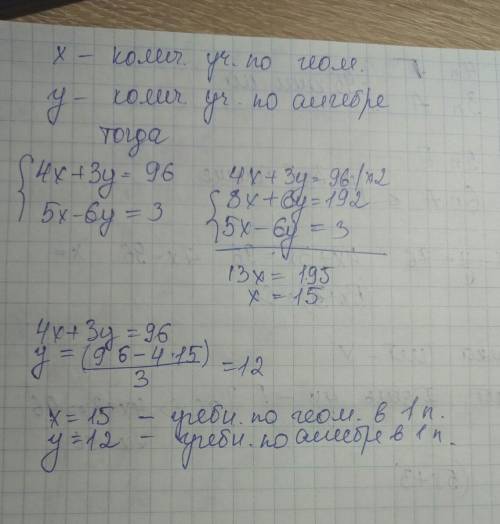 x – колич. уч. по геом.
y – колич уч. по алгебре
тогда
4x+3y = 96
5x-6y = 3
4x+3y = 96 /×2
8x+6y = 192
5x-6y = 3
13x = 195
x = 15
4x+3y = 96
y = (96-4·15)
3
=12
x = 15 – учебн. по геом. в 1 п.
y = 12 – учебн. по алгебре в 1 п.